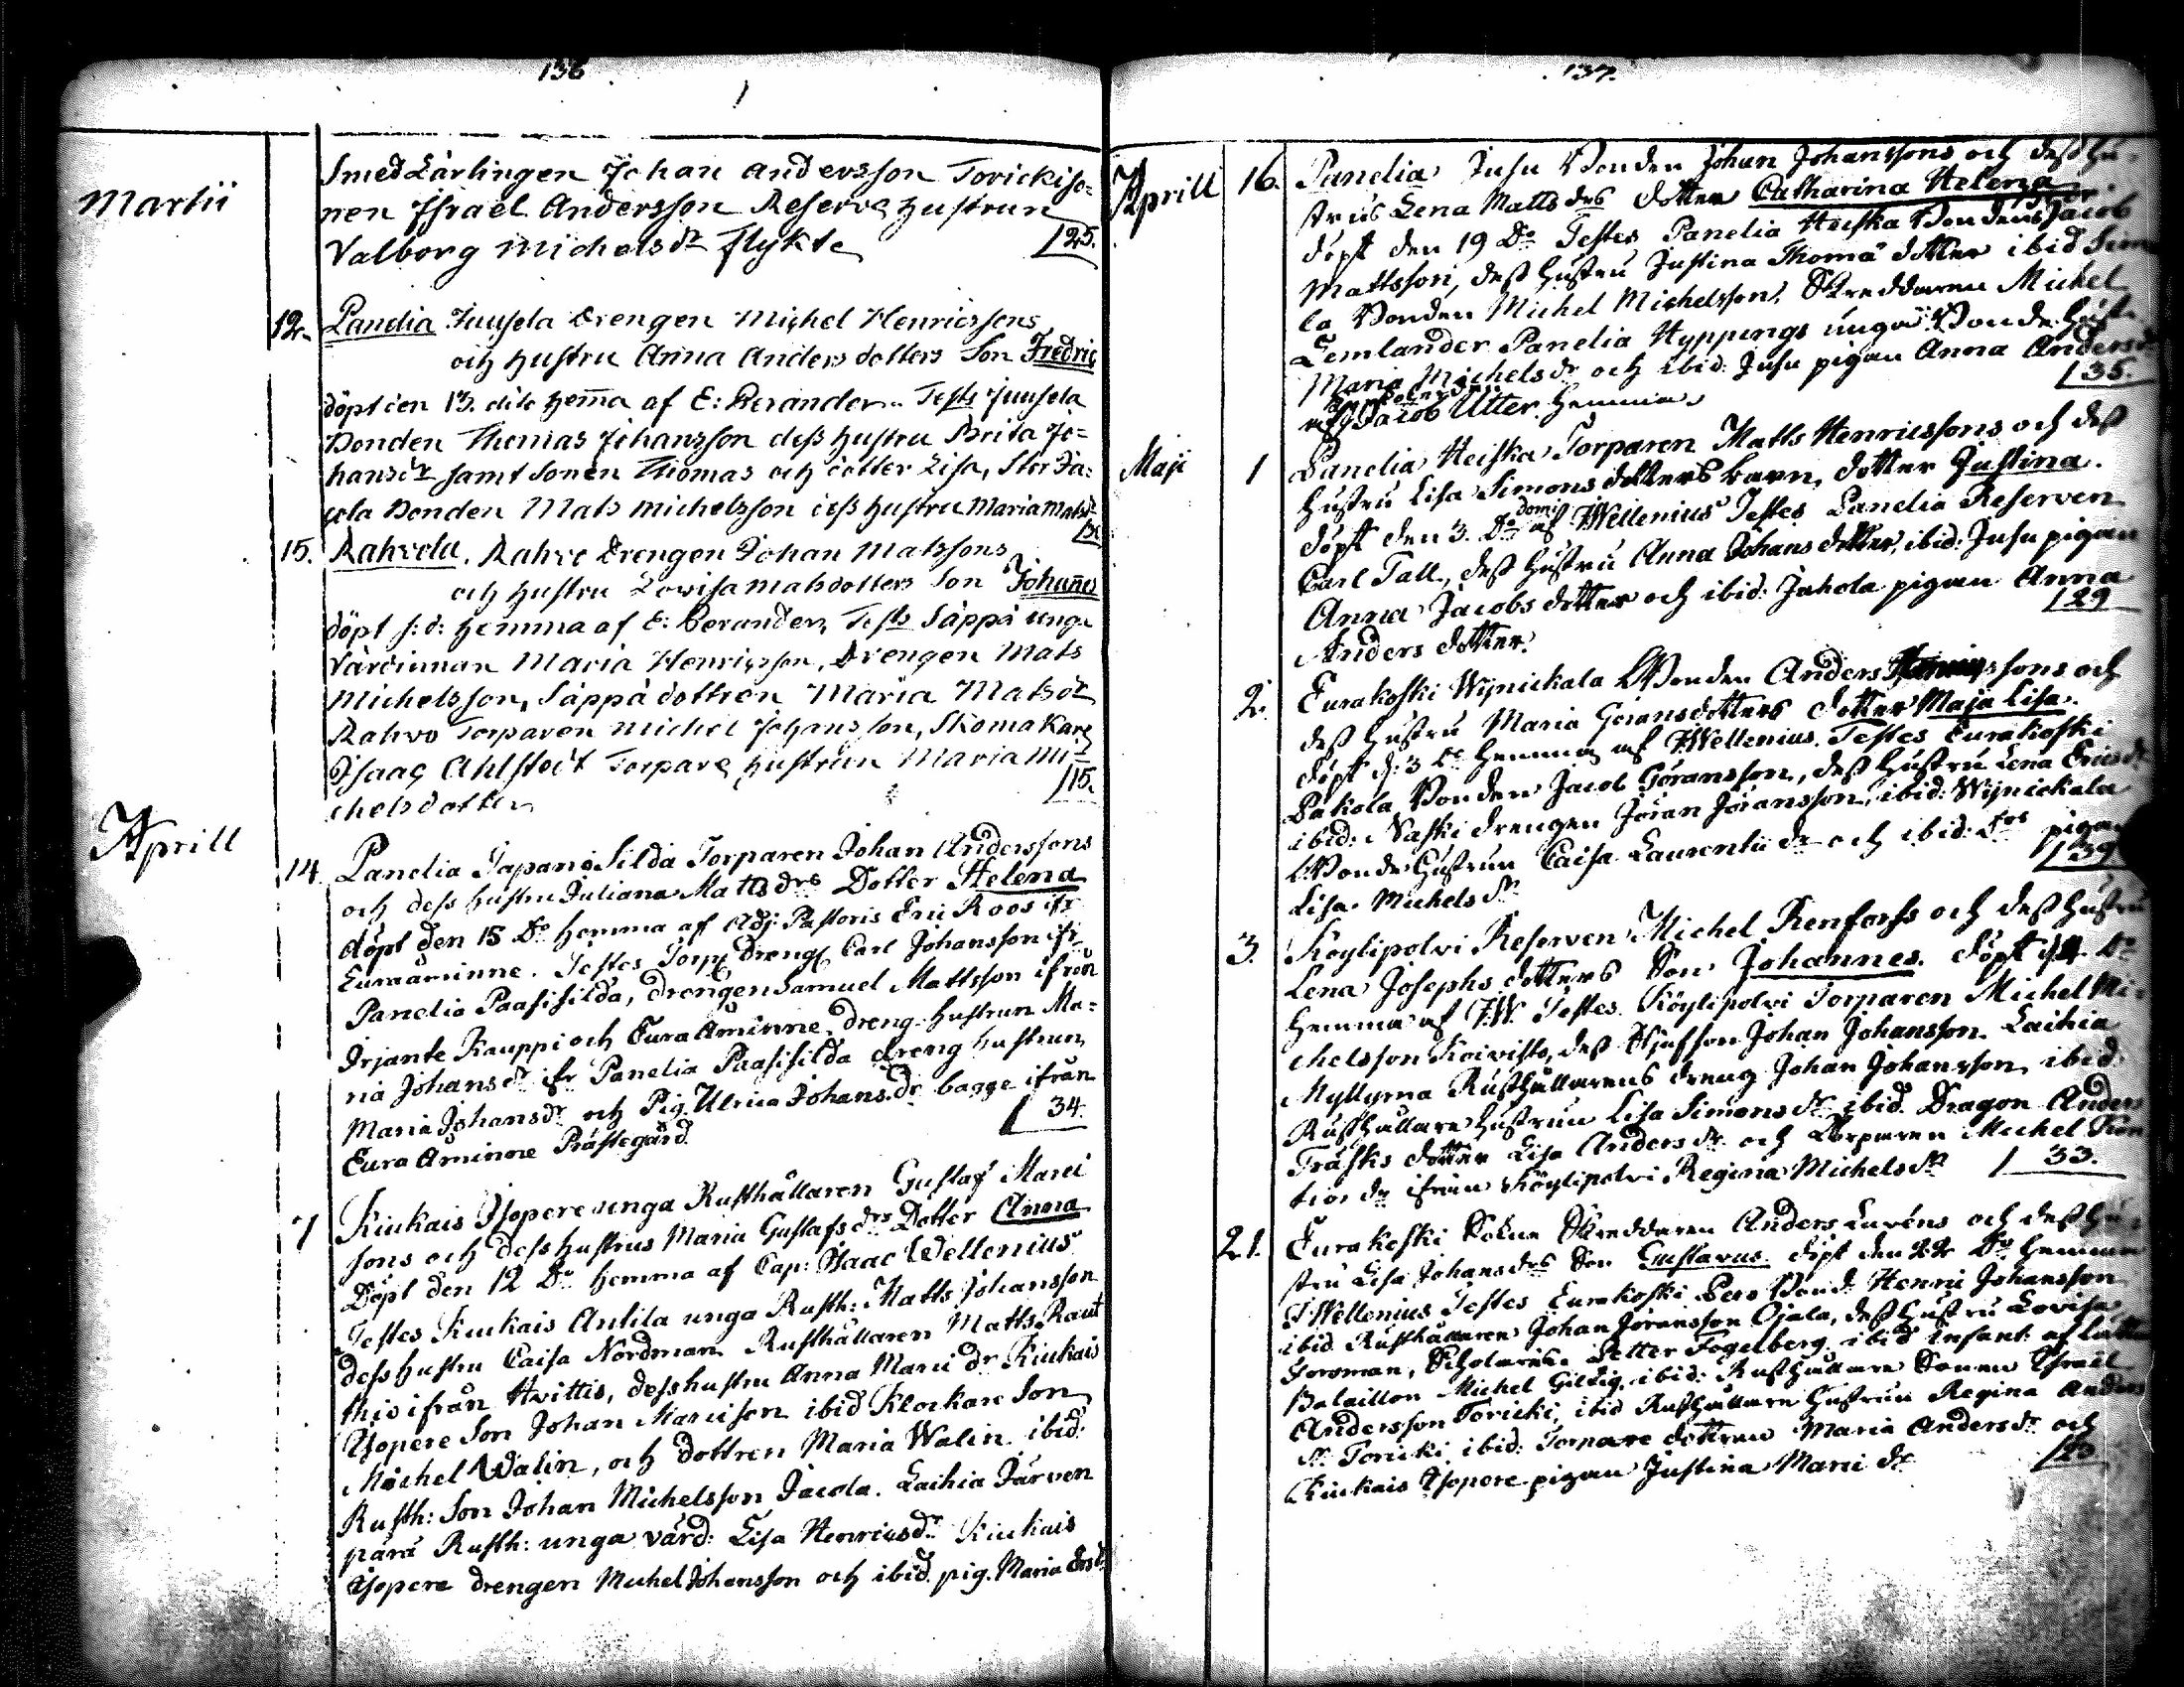 136
Martii
Smed Lärlingen Johan Andersson Torickiso=
nen Israel Andersson Reserve Hustrun
Valborg Michelsdr Flykte
25.
12. Panelia Juusela Drengen Michel Henricssons
och Hustru Anna Andersdotters Son Fredric
döpt den 13. dito hem̅a af E: Berander. Test: Juusela
Bonden Thomas Johansson dess Hustru Brita Jo=
hansdr samt Sonen Thomas och dotter Lisa, Stor Ja=
cola Bonden Mats Michelsson dess Hustru Maria Matsdr
15. Rahvola. Rahvo Drengen Johan Matssons
och Hustru Lovisa Matsdotters Son Johan̅es
döpt s: d: hemma af E: Berander, Test: Säppä unga
Värdinnan Maria Henricsson, Drengen Mats
Michelsson, Säppä dottren Maria Matsdr
Rahvo Torparen Michel Johansson, Skomakare
Isaac Ahlstedt Torpare Hustrun Maria Mi=
chelsdotter
15.
Aprill
14. Panelia Japani Silda Torparen Johan Anderssons
och dess hustru Juliana Matts drs Dotter Helena
döpt den 15 Do hemma af Adj: Pastoris Eric Roos ifr
Euraåminne. Testes Torp dreng Carl Johansson ifr
Panelia Paasisilda, drengen Samuel Mattsson ifrån
Irjante Kauppi och Eura Åminne dreng hustrun Ma=
ria Johansdr ifr Panelia Paasisilda dreng hustrun
Maria Johansdr och Pig. Ulrica Johans.dr bagge ifrån
Eura Åminne Prästegård
34.
7 Kiukais Isopere unga Rusthållaren Gustaf Marci
sons och dess hustrus Maria Gustafs drs Dotter Anna
Döpt den 12 Do hemma af Cap: Isaac Wellenius
Testes Kiukais Antila unga Rusth: Matts Johansson
dess hustru Caisa Nordman Rusthållaren Matts Raut
thio ifrån Hvittis, dess hustru Anna Marci dr Kiukais
Isopere Son Johan Marcison ibid Klockare Son
Michel Walin, och dottren Maria Walin ibid:
Rusth: Son Johan Michelsson Jacola. Laihia Järven
pärä Rusth: unga värd: Lisa Henricsdr Kiukais
Isopere drengen Michel Johansson och ibid. pig. Maria Ersdr
137.
Aprill 16. Panelia Jusu Bonden Johan Johanssons och dess hu=
strus Lena Matts drs dotter Catharina Helena
döpt den 19 Do Testes Panelia Heiska Bonden Jacob
Mattsson, dess hustru Justina Thomä dotter ibid Sim
la Bonden Michel Michelsson, Skreddaren Michel
Lemlander Panelia Hyppings unga Bonde hust.
Maria Michelsdr och ibid: Jusu pigan Anna Andersdr
af Jacob Utter hemma
35.
Maji 1 Panelia Heiska Torparen Matts Henricssons och dess
hustru Lisa Simons dotters barn, dotter Justina.
döpt den 3. Do domi af IWellenius Testes Panelia Reserven
Carl Tall, dess hustru Anna Johans dotter, ibid: Jusu pigan
Anna Jacobs dotter och ibid: Jahola pigan Anna
Anders dotter.
29
2. Eurakoski Wijnickala Bonden Anders ssons och
dess hustru Maria Göransdotters dotter Maja Lisa.
döpt d: 3 Do hemma af IWellenius. Testes Eurakoski
Pakola Bonden Jacob Göransson, dess hustru Lena Ericsdr
ibid: Saski drengen Jöran Jöransson, ibid: Wijnickala
Bonde hustrun Caisa Laurentii dr och ibid: pigan
Lisa Michels dr
39
3. Köylipolvi Reserven Michel Renforss och dess hustru
Lena Josephs dotters Son Johannes. döpt d 4 Do
hemma af IW. Testes Köylipolvi Torparen Michel Mi=
chelsson Koivisto, dess Stjufson Johan Johansson. Laihia
Myllymä Rusthållarens dreng Johan Johansson, ibid:
Rusthållare hustrun Lisa Simons dr ibid. Dragon Anders
Träsks dotter Lisa Anders dr och Torparen Michel Simon
tios dr ifrån Köylipolvi Regina Michels dr
33.
21. Eurakoski Sokne Skreddaren Anders Luréns och dess hu=
stru Lisa Johans drs Son Gustavus. döpt den 22 Do hemma
IWellenius Testes Eurakoski Pero Bond: Henric Johansson
ibid Rusthållaren Johan Jöransson Ojala, dess hustru Lovisa
Forsman, Petter Fogelberg ibid infant: af lätta
Bataillon Michel Gilzig. ibid: Rusthållare Sonen Israel
Andersson Toricki, ibid Rusthållare hustrun Regina Anders
dr Toricki ibid: Torpare dottren Maria Anders dr och
Kiukais Isopere pigan Justina Marci dr
23